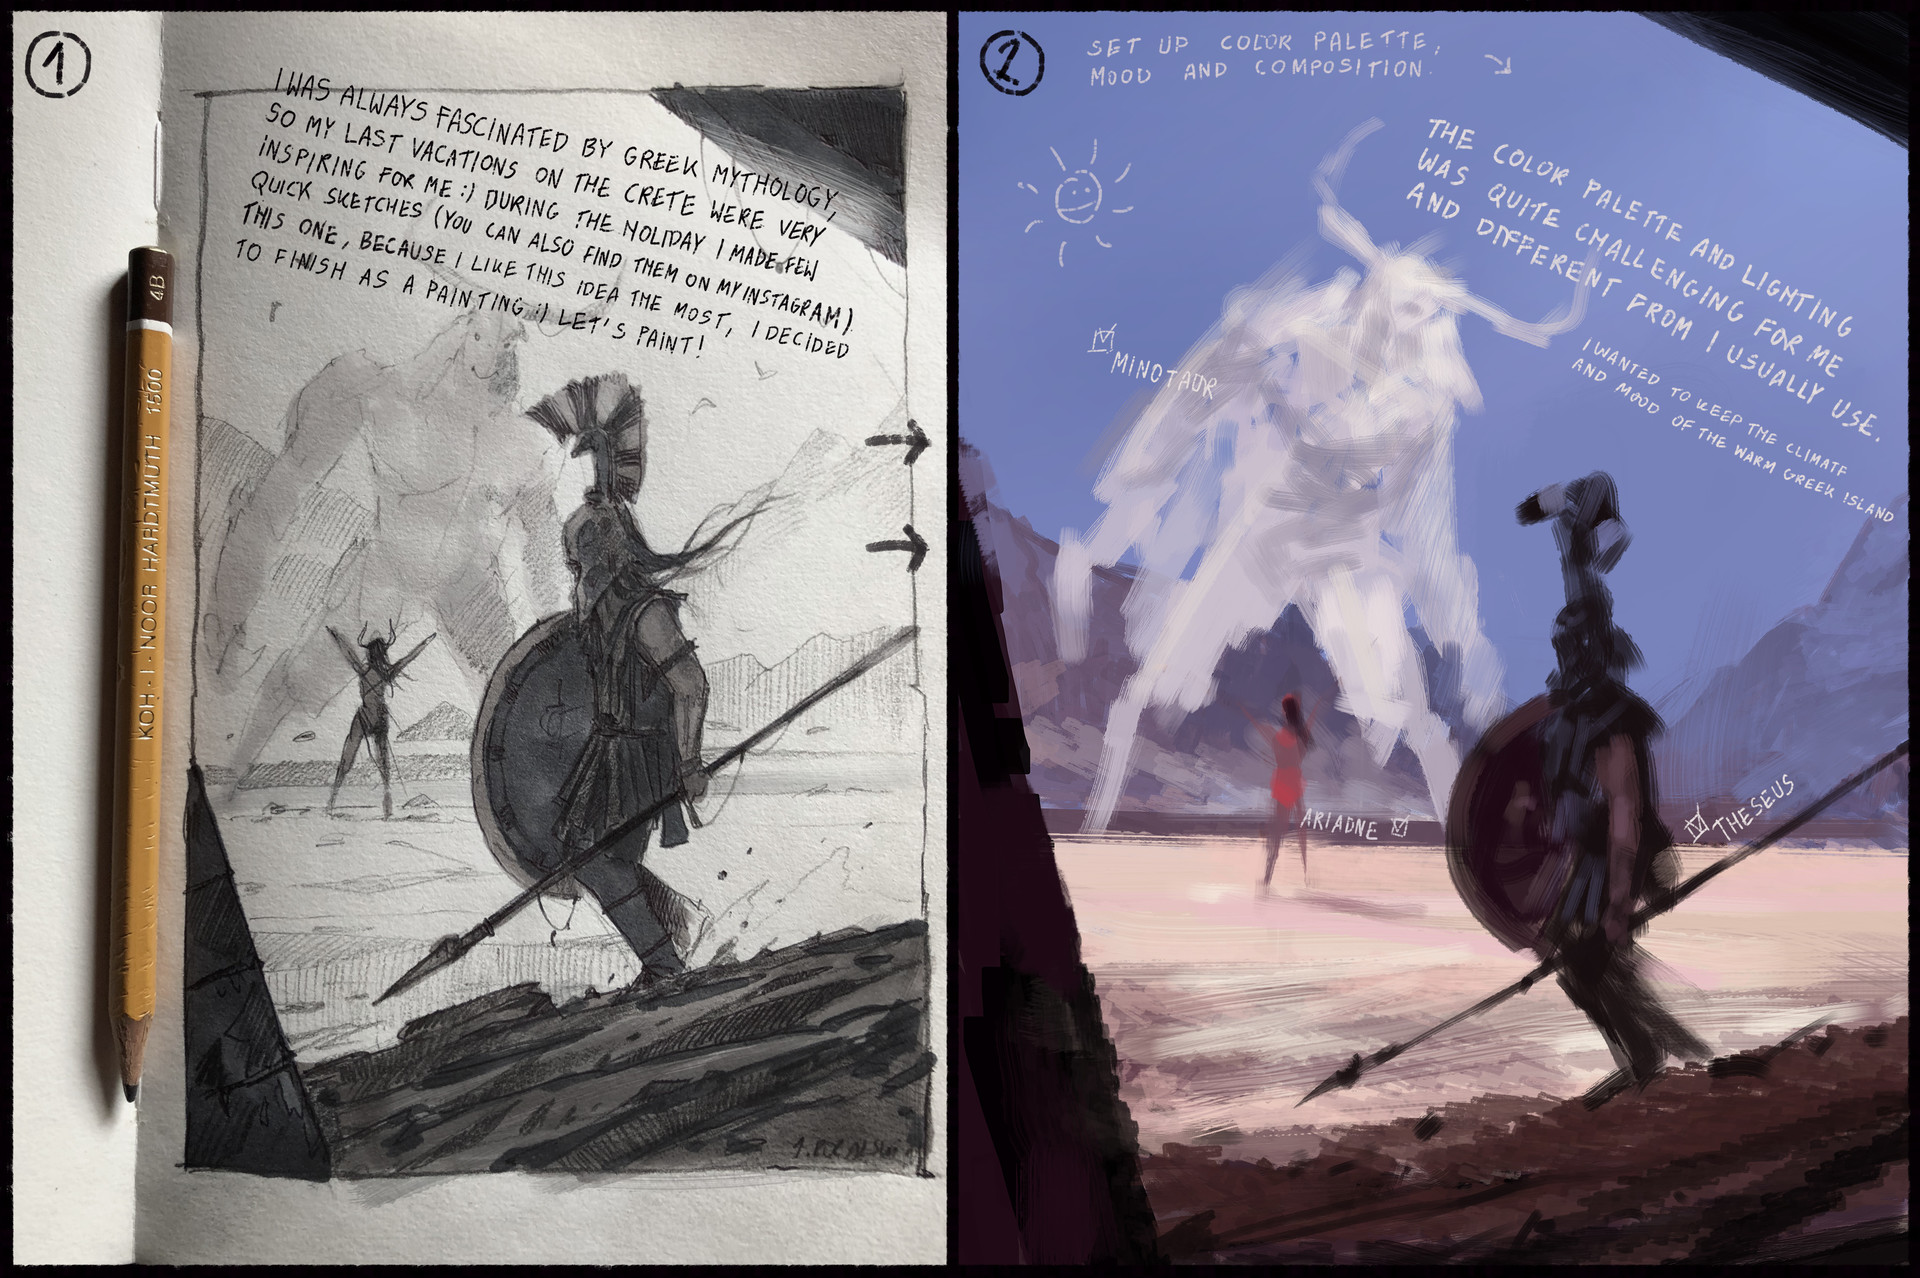 1
I WAS ALWAYS FASCINATED BY GREEK MYTHOLOGY,
SO MY LAST VACATIONS ON THE CRETE WERE VERY
INSPIRING FOR ME :) DURING THE HOLIDAY I MADE FEW
QUICK SKETCHES (YOU CAN ALSO FIND THEM ON MY INSTAGRAM).
THIS ONE, BECAUSE I LIKE THIS IDEA THE MOST, I DECIDED
TO FINISH AS A PAINTING :) LET'S PAINT!
KOH-I-NOOR HARDTMUTH 1500 4B
2
SET UP COLOR PALETTE,
MOOD AND COMPOSITION.
THE COLOR PALETTE AND LIGHTING
WAS QUITE CHALLENGING FOR ME
AND DIFFERENT FROM I USUALLY USE.
I WANTED TO KEEP THE CLIMATE
AND MOOD OF THE WARM GREEK ISLAND
MINOTAUR
ARIADNE
THESEUS